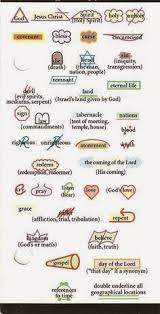 God Jesus Christ Spirit (Holy Spirit) holy unholy
covenant bless curse circumcised
die (death) Israel (the man, nation, people) sin (iniquity, transgression)
remnant eternal life
devil (evil spirits, demons, serpent) land (Israel's land given by God)
sign law (commandments) tabernacle (tent of meeting, temple, house) nations blood
righteous unrighteous altar wrath
redeem (redemption, redeemer) the coming of the Lord (His coming)
cry pray listen (hear) love (God's love)
grace (affliction, trial, tribulation) repent
kingdom (God's or man's) believe (faith, truth)
gospel day of the Lord ("that day" if a synonym)
references to time double underline all geographical locations